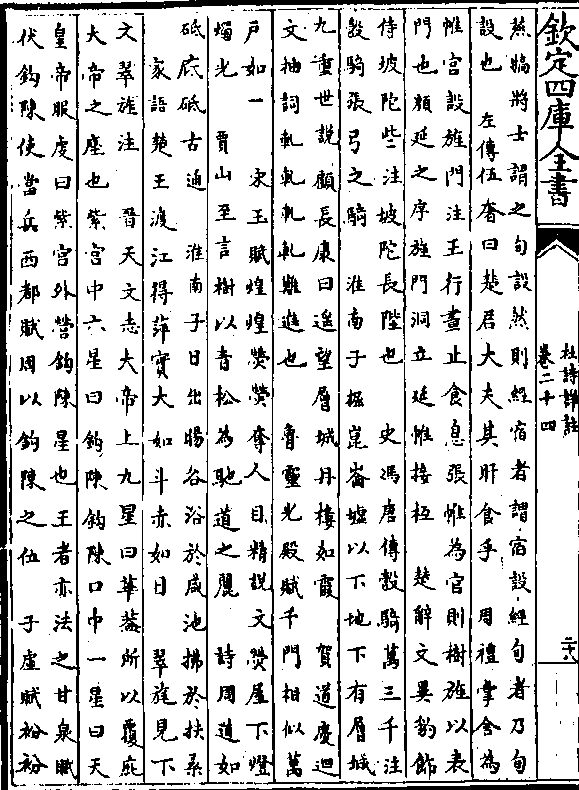 欽定四庫全書
杜詩詳註
卷二十四
二十八
燕犒將士謂之旬設然則經宿者謂宿設經旬者乃旬
設也　左傳伍奢曰楚君大夫其旰食乎　周禮掌舍為
帷宮設旌門注王行晝止食息張帷為宮則樹旌以表
門也顔延之序旌門洞立延帷接枑　楚辭文異豹飾
侍坡陀些注坡陀長陛也　史馮唐傳彀騎萬三千注
彀騎張弓之騎　淮南子掘崑崙墟以下地下有層城
九重世說顧長康曰遙望層城丹樓如霞　賀道慶迴
文抽詞軋軋軋軋難進也　魯靈光殿賦千門相似萬
戸如一　宋玉賦煌煌熒熒奪人目精説文熒屋下燈
燭光　賈山至言樹以青松為馳道之麗　詩周道如
砥底砥古通　淮南子日出暘谷浴於咸池拂於扶桑
家語楚王渡江得萍實大如斗赤如日　翠旌見下
文翠旌注　晉天文志大帝上九星曰華蓋所以覆庇
大帝之座也紫宮中六星曰鈎陳鈎陳口中一星曰天
皇帝服虔曰紫宮外營鈎陳星也王者亦法之甘泉賦
伏鈎陳使當兵西都賦周以鈎陳之位　子虛賦衯衯